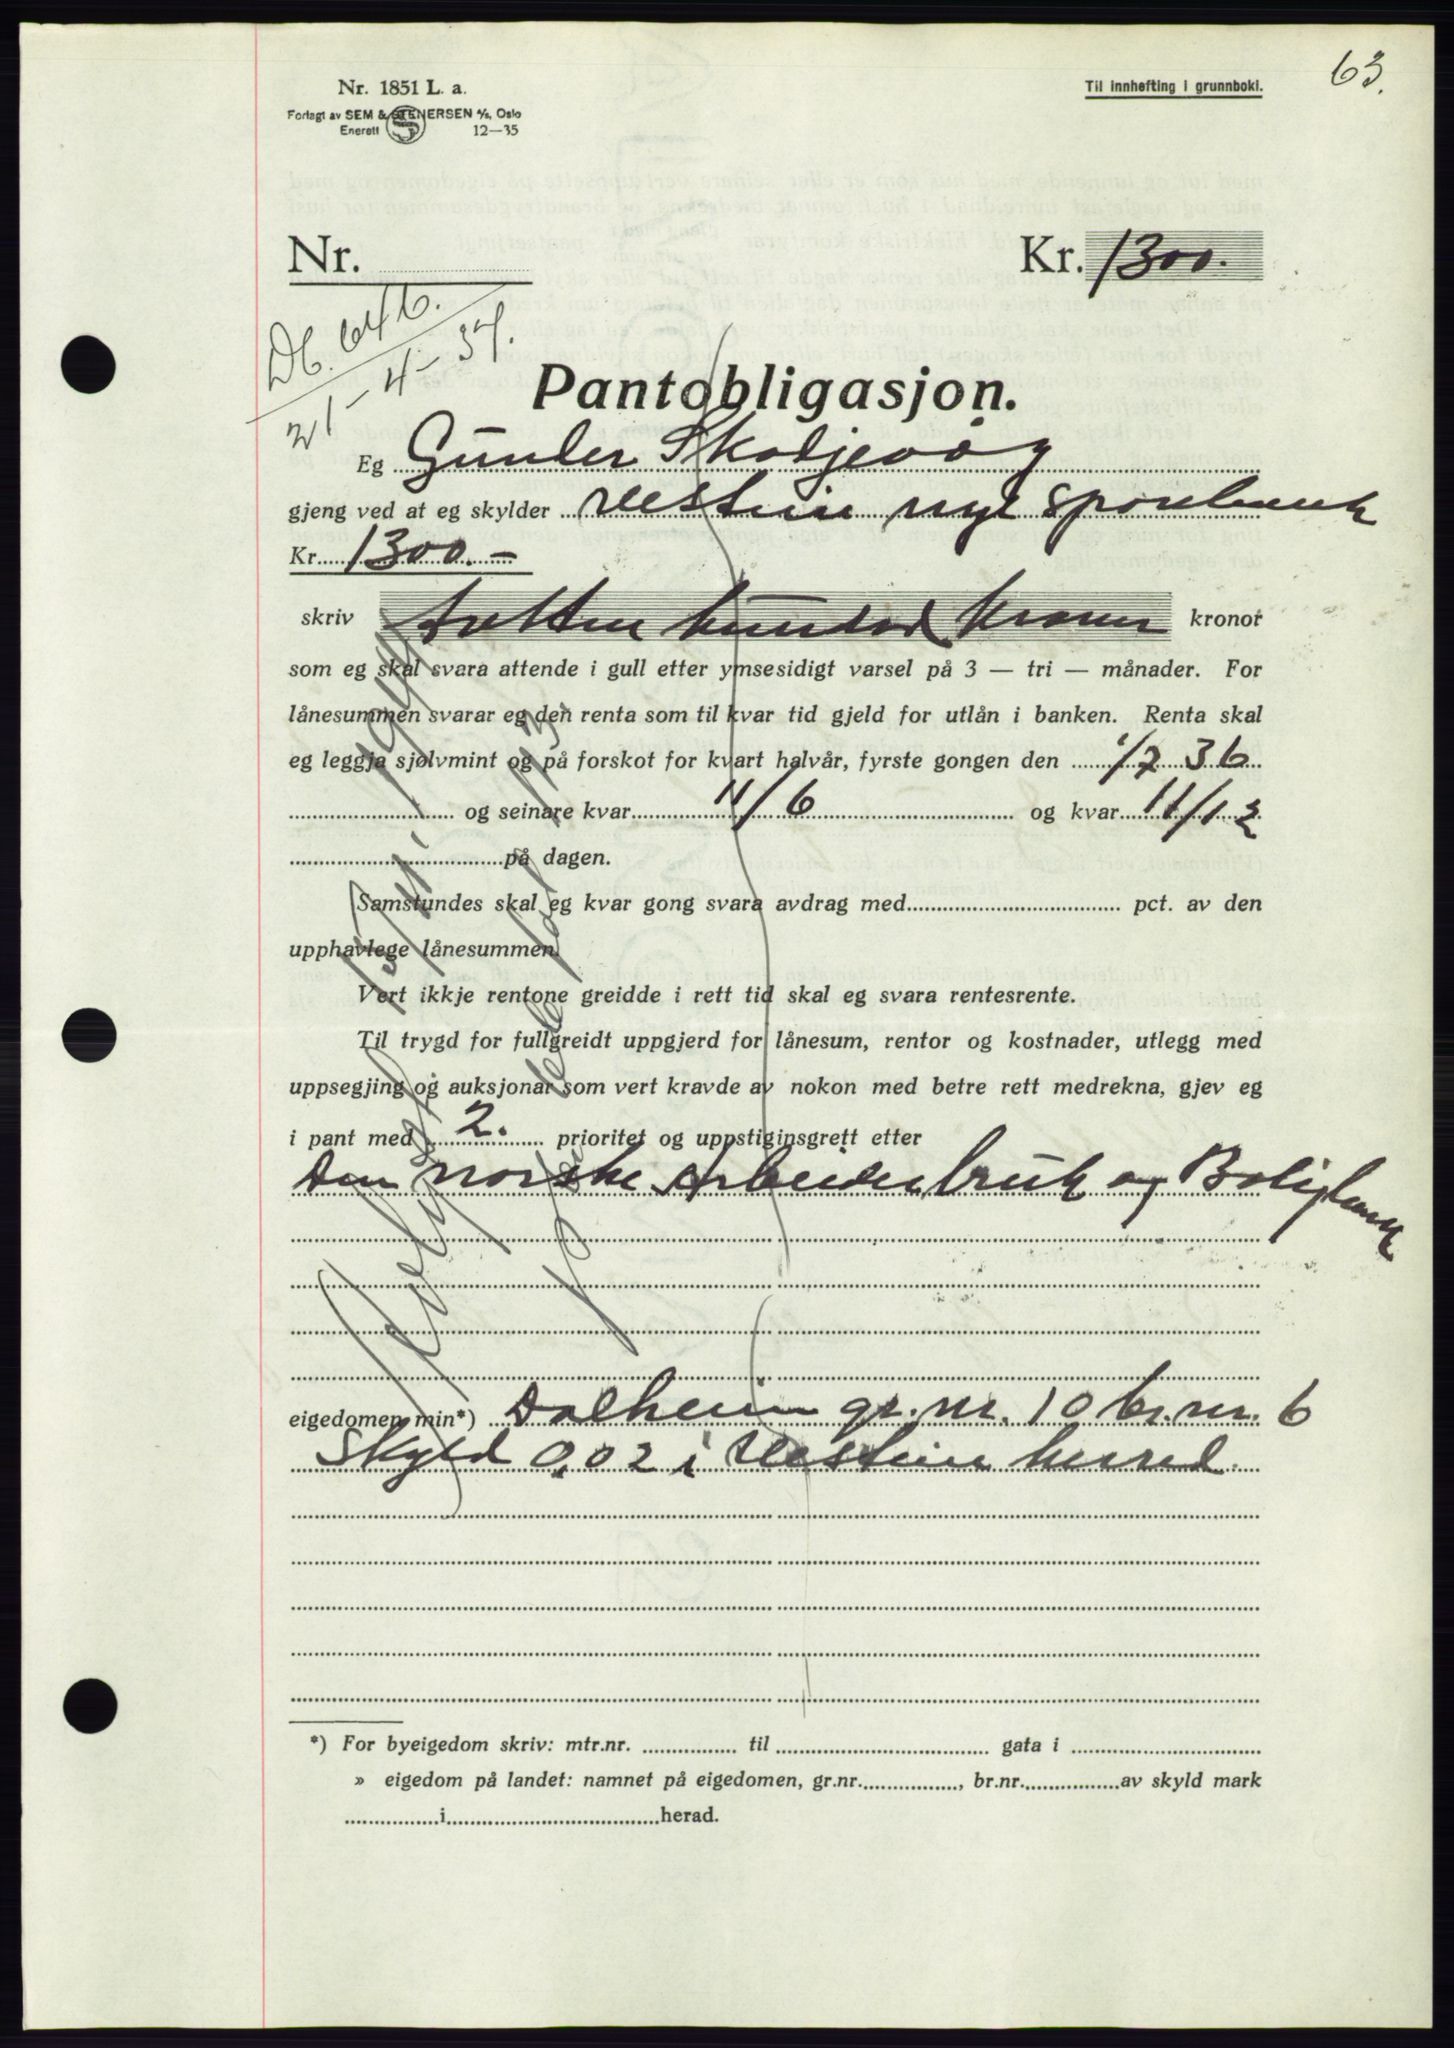 63.
Nr. 1851 L. a.
Forlagt av SEM & STENERSEN A/S, Oslo
Enerett 12—35
Til innhefting i grunnboki.
Nr.
Kr. 1300.
Db. 646.
21-4-37.
Pantobligasjon.
Eg Gunder Skodjevåg
gjeng ved at eg skylder Vestnes nye Sparebank
Kr. 1300.-
skriv Tretten hundred Kroner kronor
som eg skal svara attende i gull etter ymsesidigt varsel på 3 — tri — månader. For
lånesummen svarar eg den renta som til kvar tid gjeld for utlån i banken. Renta skal
eg leggja sjølvmint og på forskot for kvart halvår, fyrste gongen den 1/7 36
og seinare kvar 11/6 og kvar 11/12
på dagen.
Samstundes skal eg kvar gong svara avdrag med pct. av den
upphavlege lånesummen.
Vert ikkje rentone greidde i rett tid skal eg svara rentesrente.
Til trygd for fullgreidt uppgjerd for lånesum, rentor og kostnader, utlegg med
uppsegjing og auksjonar som vert kravde av nokon med betre rett medrekna, gjev eg
i pant med 2. prioritet og uppstiginsgrett etter
Den norske Arbeiderbruk og Boligbank
eigedomen min*) Dalheim gr.nr. 10 br.nr. 6
Skyld 0,02 i Vestnes herred.
*) For byeigedom skriv: mtr.nr. til gata i
» eigedom på landet: namnet på eigedomen, gr.nr. , br.nr. av skyld mark
i herad.